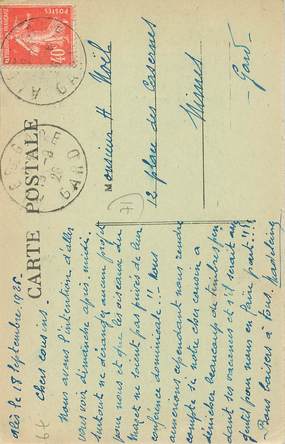 CARTE POSTALE
POSTES
40c
GARD
Monsieur H. Noël
12 place des Casernes
Nimes
Gard
le 18 septembre 1926
Chers cousins.
Nous avons l'intention d'aller
vous voir dimanche après midi.
Surtout ne dérangez aucun projet
pour nous et que les oiseaux du
mazet ne soient pas privés de leur
conférence dominicale!! Nous
aimerions cependant nous rendre
compte si notre cher cousin a
déniché beaucoup de timbres pen
dant ses vacances et s'il serait
pour nous en faire part!!!
Bons baisers à tous. Madeleine